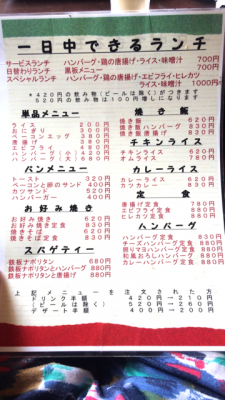 一日中できるランチ
サービスランチ ハンバーグ・鶏の唐揚げ・ライス・味噌汁 700円
日替わりランチ 黒板メニュー 700円
スペシャルランチ ハンバーグ・鶏の唐揚げ・エビフライ・ヒレカツ
ライス・味噌汁 1000円
*420円の飲み物(ビールは除く)がつきます
520円の飲み物は100円増しになります
単品メニュー
ライス 200円
おにぎり 300円
ハーム エッグ 380円
唐揚げ
エビフライ 480円
ハンバーグ(小) 420円
ハンバーグ(大) 680円
パンメニュー
トースト 320円
ベーコンと卵のサンド 400円
カツサンド 520円
ハンバーガー 400円
お好み焼き
お好み焼き 620円
お好み焼き定食 830円
焼きそば 620円
焼きそば定食 830円
スパゲティー
鉄板ナポリタン 680円
鉄板ナポリタンとハンバーグ 880円
鉄板ナポリタンと唐揚げ 880円
焼き飯
焼き飯 620円
焼き飯ハンバーグ 830円
焼き飯唐揚げ 830円
チキンライス
チキンライス 620円
オムライス 780円
カレーライス
カレーライス 620円
カツカレー 830円
定食
唐揚げ定食 780円
エビフライ定食 880円
ヒレカツ定食 880円
ハンバーグ
ハンバーグ定食 830円
チーズハンバーグ定食 880円
照りマヨハンバーグ定食 880円
和風おろしハンバーグ 880円
カレーハンバーグ定食 880円
上記メニューを注文された方
ドリンク半額 420円→210円
(ビールは除く) 520円→260円
デザート半額 400円→200円